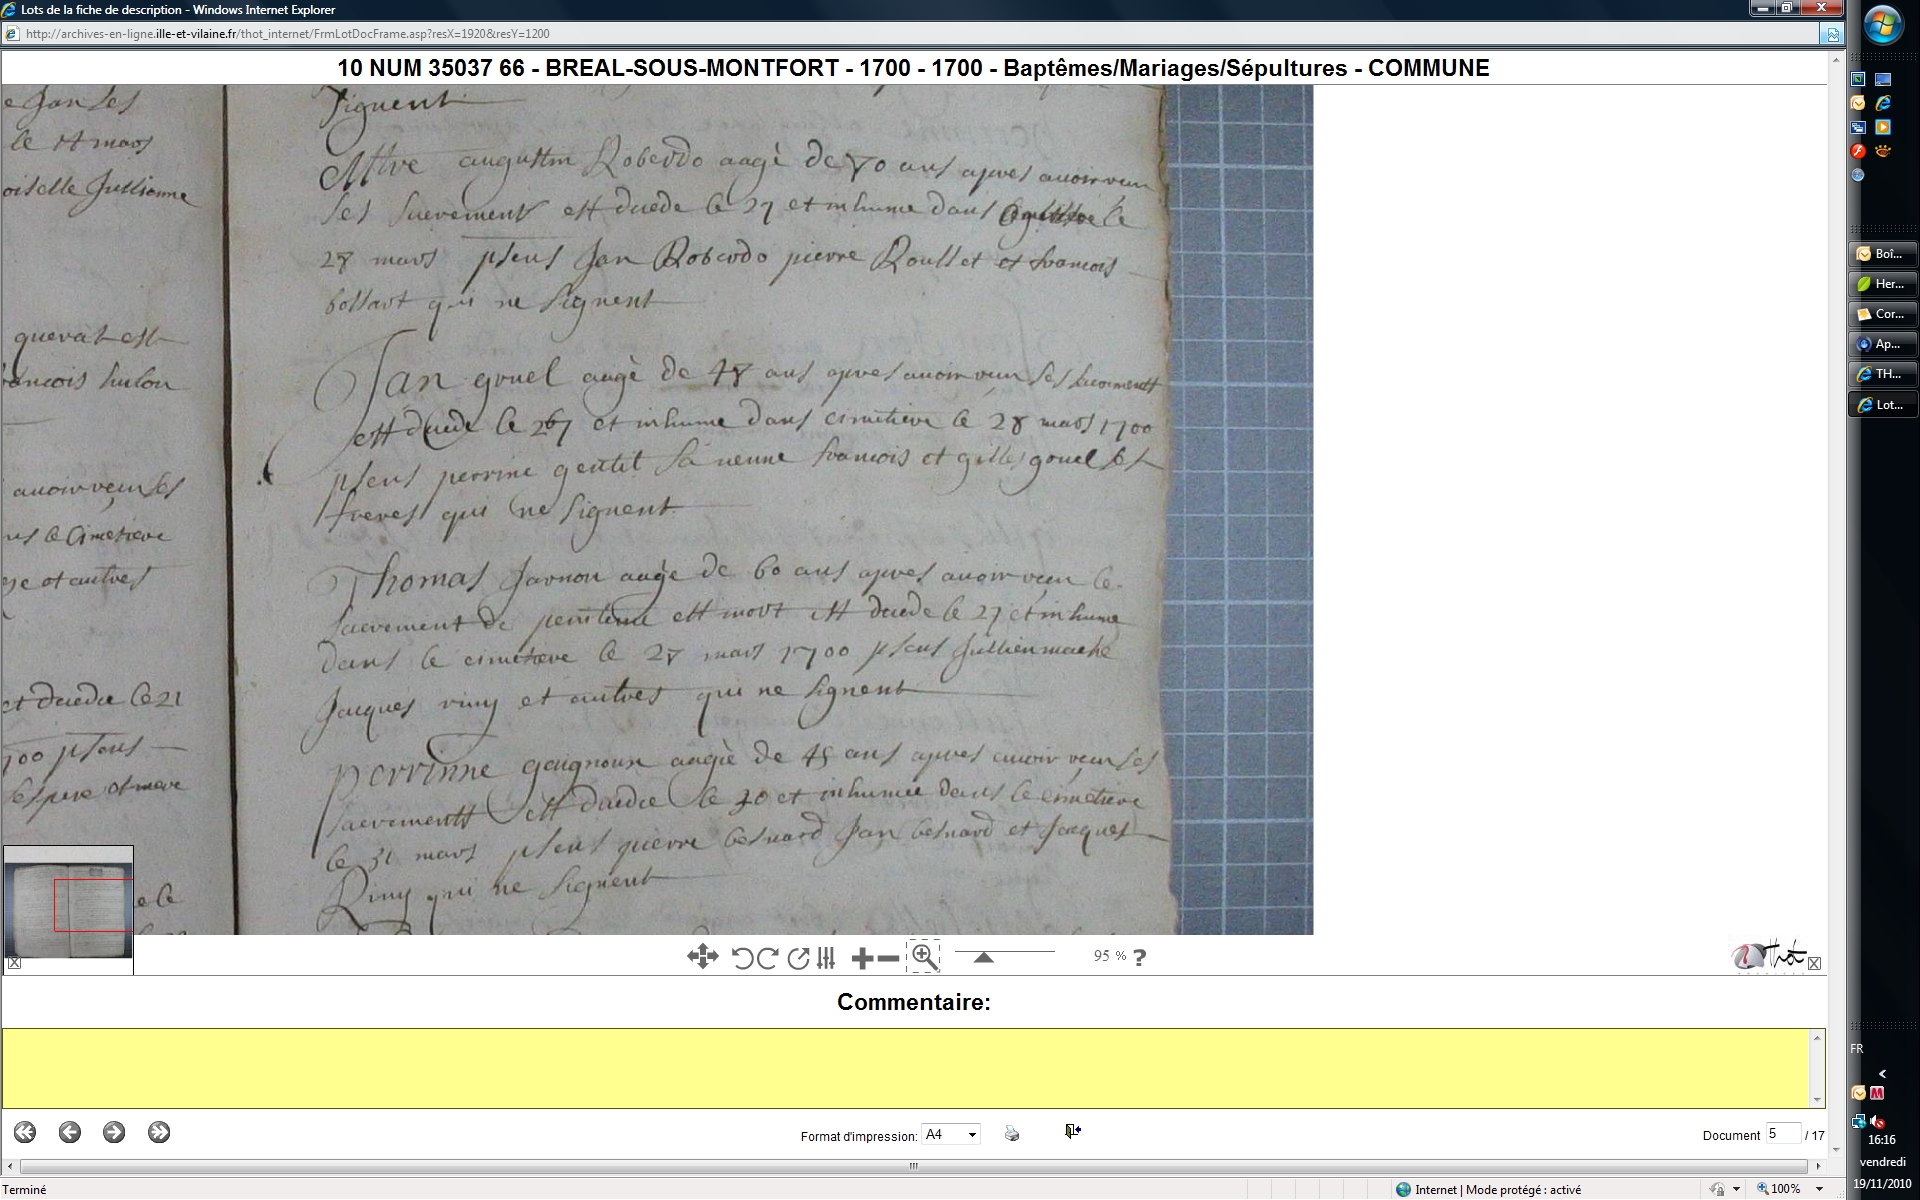 Lots de la fiche de description - Windows Internet Explorer
http://archives-en-ligne.ille-et-vilaine.fr/thot_internet/FrmLotDocFrame.asp?resX=1920&resY=1200
10 NUM 35037 66 - BREAL-SOUS-MONTFORT - 1700 - 1700 - Baptêmes/Mariages/Sépultures - COMMUNE
e Jan ses
le 17 mars
oiselle Jullienne
querat est
francois hulou
avoir receu ses
ns le Cimetiere
et autres
et decedee le 21
1700 psens
ses pere et mere
e le
signent
augustin Roberdo aagé de 70 ans apres avoir receu
ses sacrements est decede le 27 et inhume dans le
28 mars psens Jan Roberdo pierre Roullet et francois
bollart qui ne signent
Jan gouel aagé de 48 ans apres avoir receu ses sacrements
est decede le 267 et inhume dans cimetiere le 28 mars 1700
psens perrine gentil sa francois et gilles gouel ses
freres qui ne signent
Thomas Jarnou aage de 60 ans apres avoir receu le
sacrement de penitence est mort est decede le 27 et inhume
dans le cimetiere le 28 mars 1700 psens Jullien mache
Jacques riny et autres qui ne signent
perrinne gaignoux aagée de 45 ans apres avoir receu ses
sacrements est decedee le 30 et inhumee dans le cimetiere
le 31 mars psens pierre besnard Jan besnard et Jacques
Riny qui ne signent
95 % ?
Thot
Commentaire:
Format d'impression: A4
Document 5 / 17
Terminé
Internet | Mode protégé : activé
100%
Boî...
Her...
Cor...
Ap...
TH...
Lot...
FR
16:16
vendredi
19/11/2010